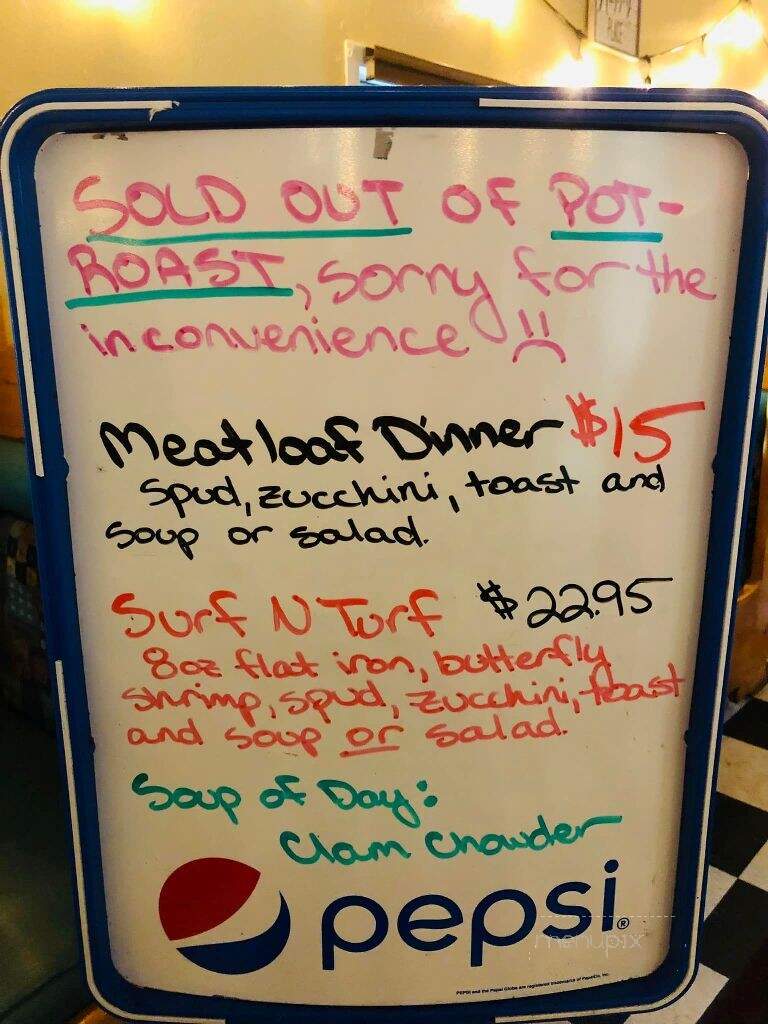 SOLD OUT OF POT-
ROAST, sorry for the
inconvenience
Meatloaf Dinner $15
Spud, zucchini, toast and
soup or salad.
Surf N Turf $22.95
8oz flat iron, butterfly
shrimp, spud, zucchini, toast
and soup or salad.
Soup of Day:
Clam Chowder
pepsi®
menupix
PEPSI and the Pepsi Globe are registered trademarks of PepsiCo, Inc.